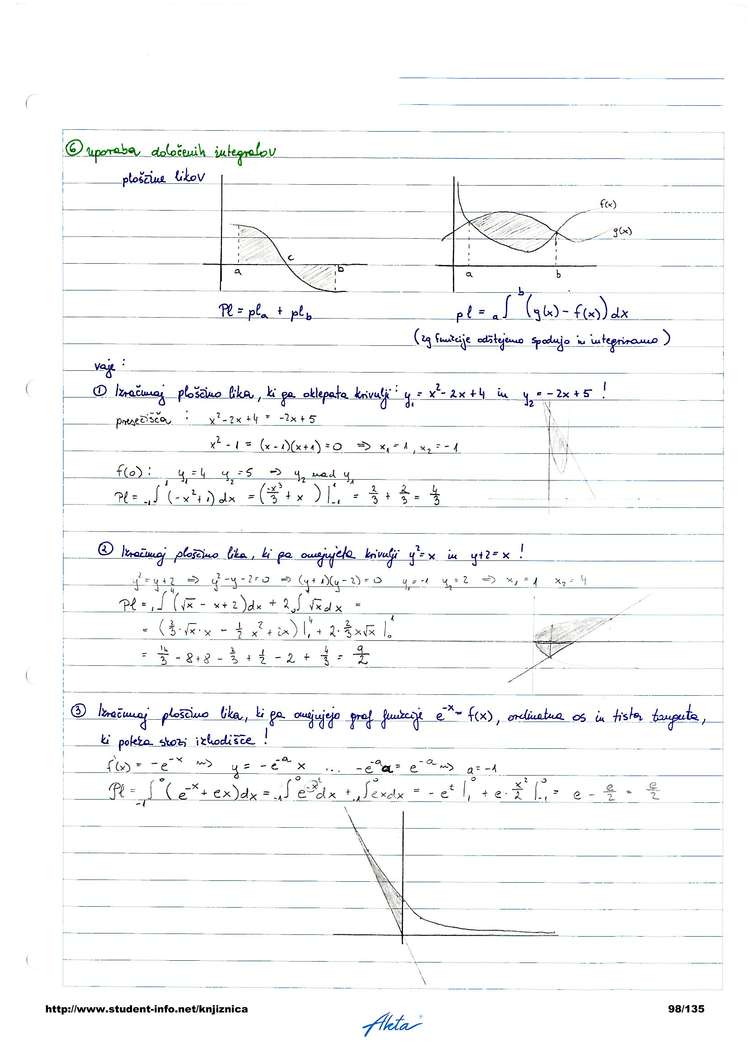 ⑥ uporaba določenih integralov
ploščine likov
f(x)
g(x)
a c b
a b
Pl = pla + plb
pl = a∫b (g(x) - f(x)) dx
(zg funkcije odštejemo spodnjo in integriramo)
vaje:
① Izračunaj ploščino lika, ki ga oklepata krivulji: y₁ = x² - 2x + 4 in y₂ = -2x + 5 !
presečišča : x² - 2x + 4 = -2x + 5
x² - 1 = (x-1)(x+1) = 0 ⇒ x₁ = 1, x₂ = -1
f(0): y₁ = 4 y₂ = 5 ⇒ y₂ nad y₁
Pl = -1∫1 (-x² + 1) dx = (-x³/3 + x) |1-1 = 2/3 + 2/3 = 4/3
② Izračunaj ploščino lika, ki ga omejujeta krivulji y² = x in y+2 = x !
y² = y+2 ⇒ y² - y - 2 = 0 ⇒ (y+1)(y-2) = 0 y₁ = -1 y₂ = 2 ⇒ x₁ = 1 x₂ = 4
Pl = 1∫4 (√x - x + 2) dx + 2 0∫1 √x dx =
= (2/3 · √x · x - 1/2 x² + 2x) |41 + 2 · 2/3 x√x |10
= 16/3 - 8 + 8 - 2/3 + 1/2 - 2 + 4/3 = 9/2
③ Izračunaj ploščino lika, ki ga omejujejo graf funkcije e⁻ˣ = f(x), ordinatna os in tista tangenta,
ki poteka skozi izhodišče !
f'(x) = -e⁻ˣ ⇝ y = -e⁻ᵃ x ... -e⁻ᵃ a = e⁻ᵃ ⇝ a = -1
Pl = -1∫0 (e⁻ˣ + ex) dx = -1∫0 e⁻ˣ dx + -1∫0 ex dx = -eᵗ |01 + e · x²/2 |0-1 = e - e/2 = e/2
http://www.student-info.net/knjiznica
98/135
Akta